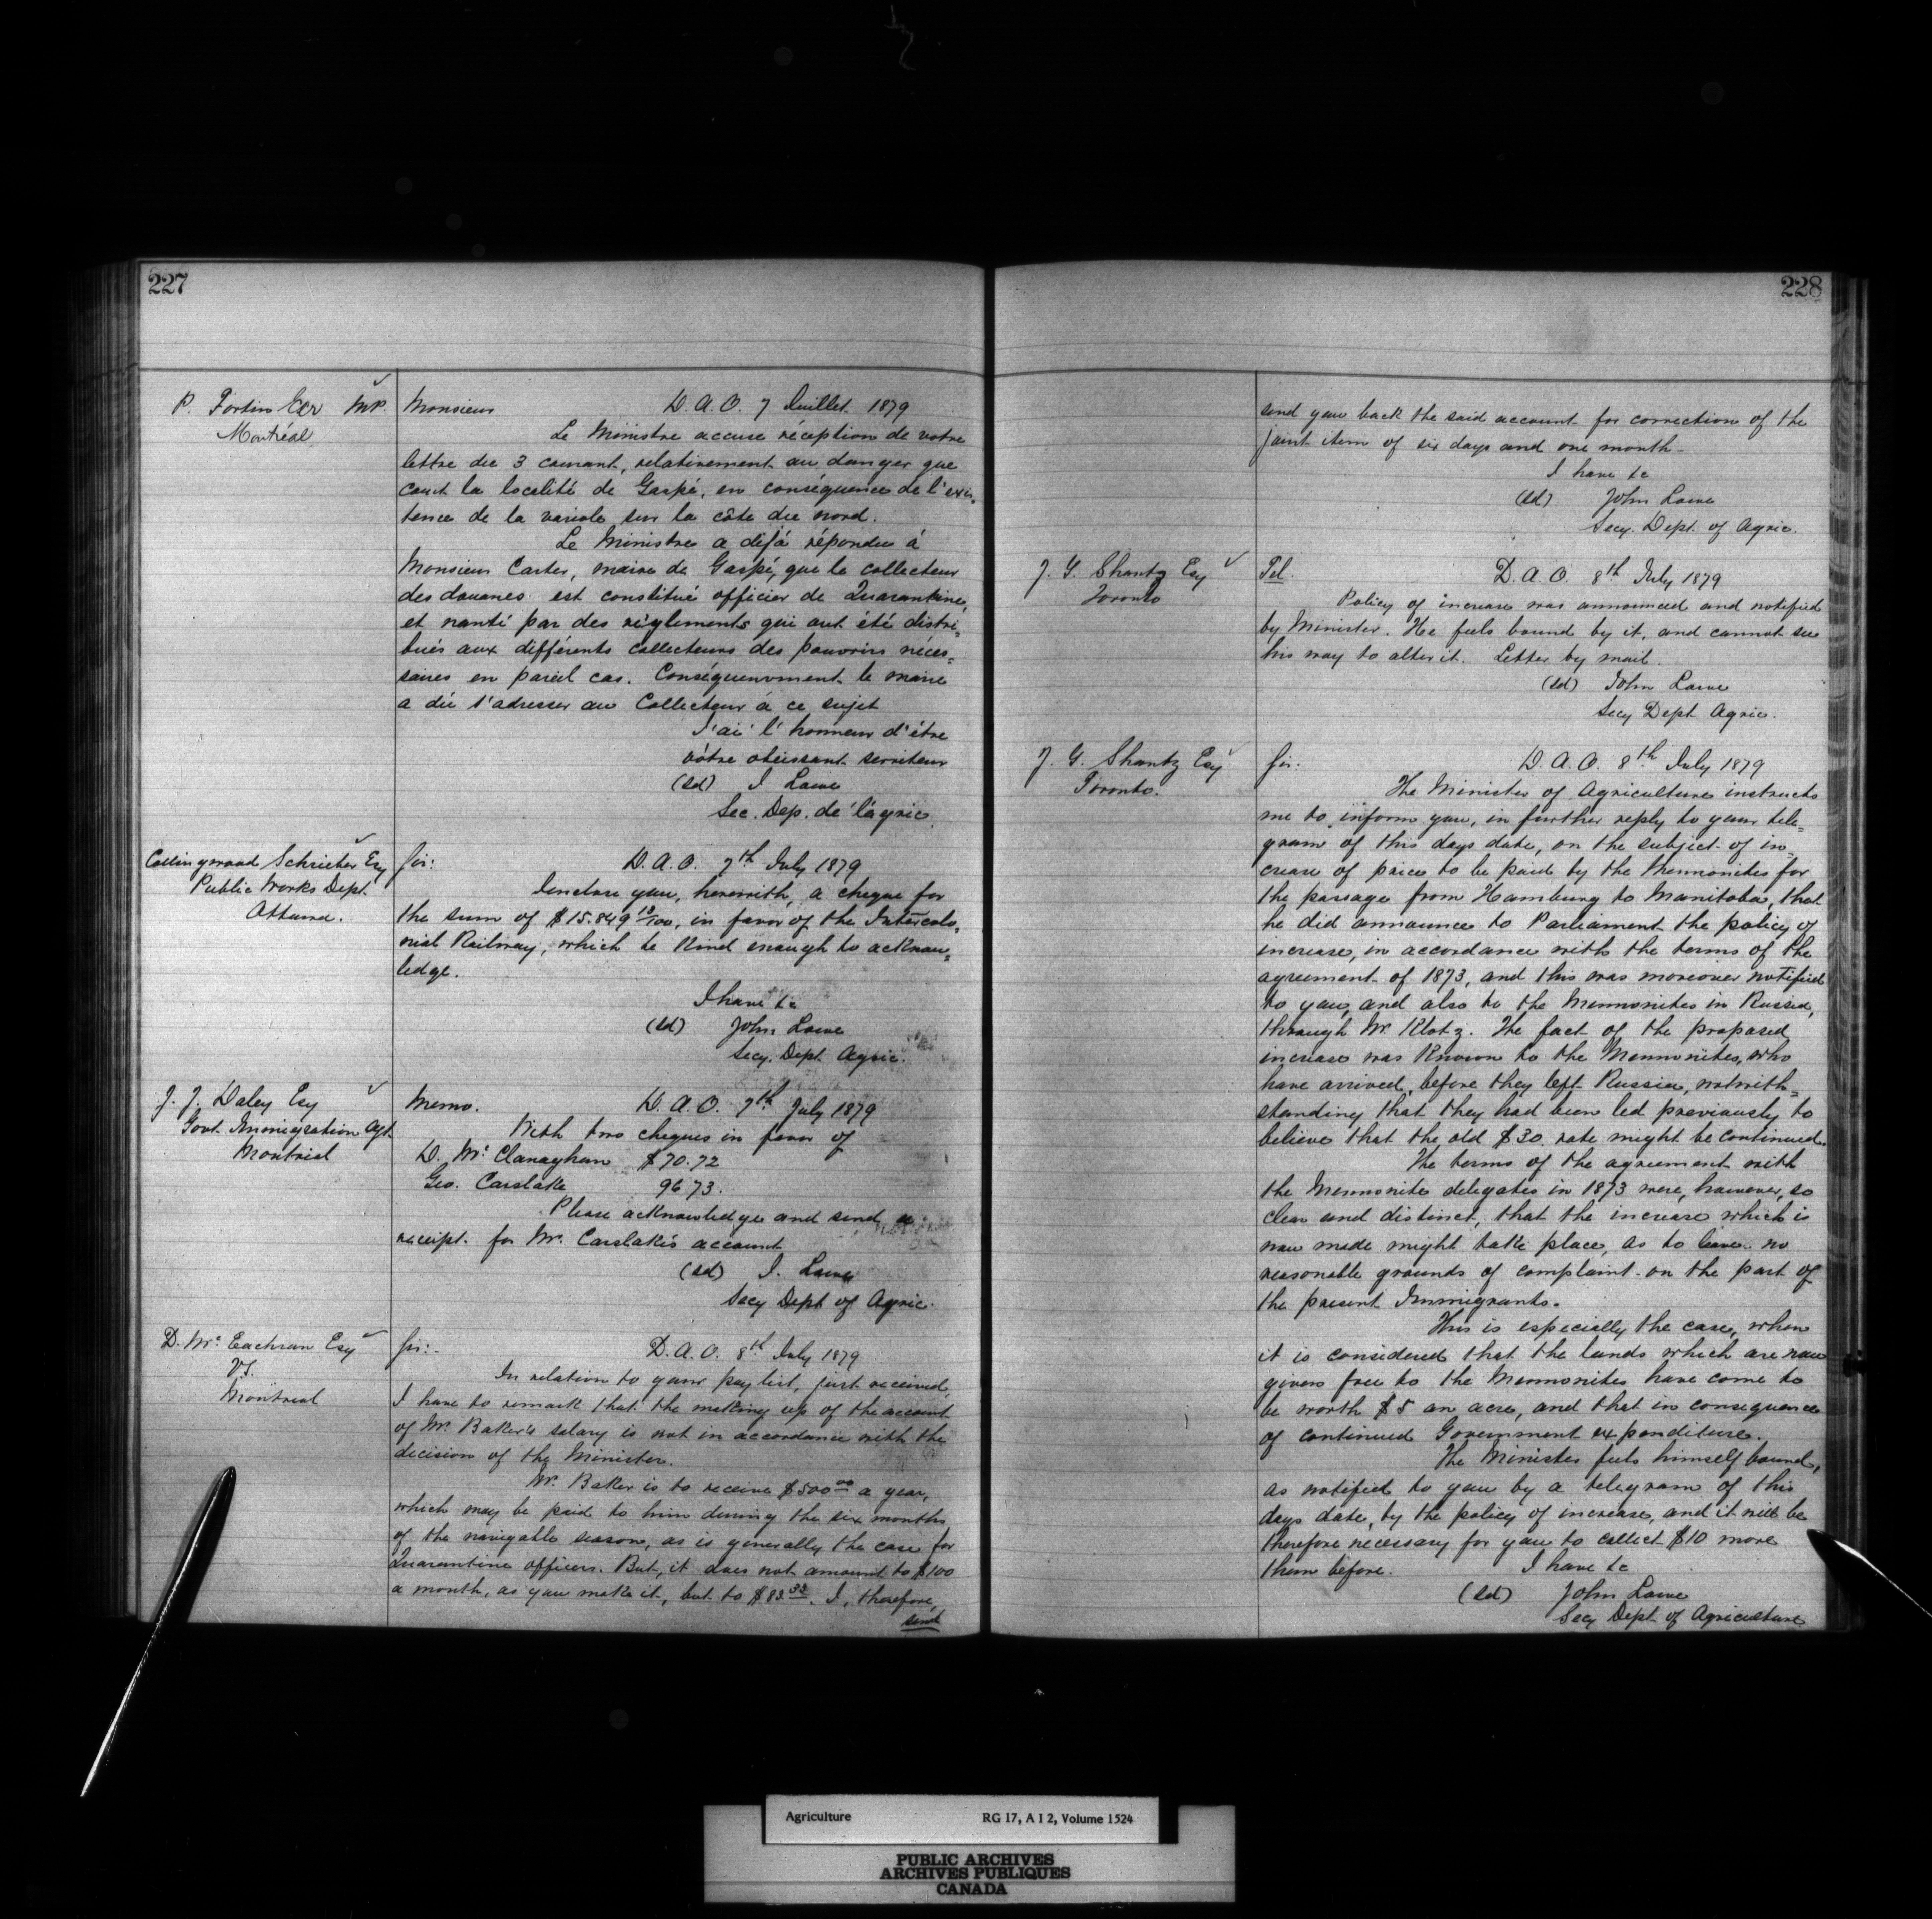 227
P. Fortin Ecr M.P.
Montréal
Monsieur D.A.O. 7 Juillet 1879
Le Ministre accuse réception de votre
lettre du 3 courant, relativement au danger que
court la localité de Gaspé, en conséquence de l'exis-
tence de la variole sur la côte du nord.
Le Ministre a déjà répondu à
Monsieur Carter, maire de Gaspé, que le collecteur
des douanes est constitué officier de Quarantine,
et nanti par des règlements qui ont été distri=
bués aux différents collecteurs des pouvoirs néces=
saires en pareil cas. Conséquemment le maire
a dû s'adresser au Collecteur à ce sujet
J'ai l'honneur d'être
vôtre obéissant serviteur
(sd) J Lowe
Sec. Dep. de l'agric.
Collingwood Schrieber Esq
Public Works Dept.
Ottawa.
Sir: D.A.O. 7th July 1879
I enclose you, herewith, a cheque for
the sum of $15.849 18/100, in favor of the Intercolo=
nial Railway, which be kind enough to acknow=
ledge.
I have &c
(sd) John Lowe
Secy. Dept. Agric.
J. J. Daley Esq
Govt. Immigration Agt
Montreal
Memo. D.A.O. 7th July 1879
With two cheques in favor of
D. Mc Clanaghan $70.72
Geo. Carslake 96 73.
Please acknowledge and send a
receipt for Mr. Carslake's account
(sd) J. Lowe
Secy Dept of Agric.
D. Mc Eachran Esq
V.S.
Montreal
Sir:- D.A.O. 8th July 1879
In relation to your pay list, just received,
I have to remark that the making up of the account
of Mr. Baker's salary is not in accordance with the
decision of the Minister.
Mr. Baker is to receive $500 00 a year,
which may be paid to him during the six months
of the navigable season, as is generally the case for
Quarantine officers. But, it does not amount to $100
a month, as you make it, but to $83 33. I, therefore,
send
228
send you back the said account for correction of the
joint item of six days and one month-
I have &c
(sd) John Lowe
Secy. Dept. of Agric.
J. Y. Shantz Esq
Toronto
Tel. D.A.O. 8th July 1879
Policy of increase was announced and notified
by Minister. He feels bound by it, and cannot see
his way to alter it. Letter by mail.
(sd) John Lowe
Secy Dept Agric.
J. Y. Shantz Esq
Toronto.
Sir: D.A.O. 8th July 1879
The Minister of Agriculture instructs
me to inform you, in further reply to your tele=
gram of this days date, on the subject of in=
crease of price to be paid by the Mennonites for
the passage from Hamburg to Manitoba, that
he did announce to Parliament the policy of
increase, in accordance with the terms of the
agreement of 1873, and this was moreover notified
to you, and also to the Mennonites in Russia,
through Mr. Klotz. The fact of the proposed
increase was known to the Mennonites, who
have arrived, before they left Russia, notwith=
standing that they had been led previously to
believe that the old $30. rate might be continued.
The terms of the agreement with
the Mennonite delegates in 1873 were, however, so
clear and distinct, that the increase which is
now made might take place, as to leave no
reasonable grounds of complaint on the part of
the present Immigrants.
This is especially the case, when
it is considered that the lands which are now
given free to the Mennonites have come to
be worth $5 an acre, and that in consequence
of continued Government expenditure.
The Minister feels himself bound,
as notified to you by a telegram of this
days date, by the policy of increase, and it will be
therefore necessary for you to collect $10 more
than before. I have &c
(sd) John Lowe
Secy Dept of Agriculture
Agriculture RG 17, A I 2, Volume 1524
PUBLIC ARCHIVES
ARCHIVES PUBLIQUES
CANADA